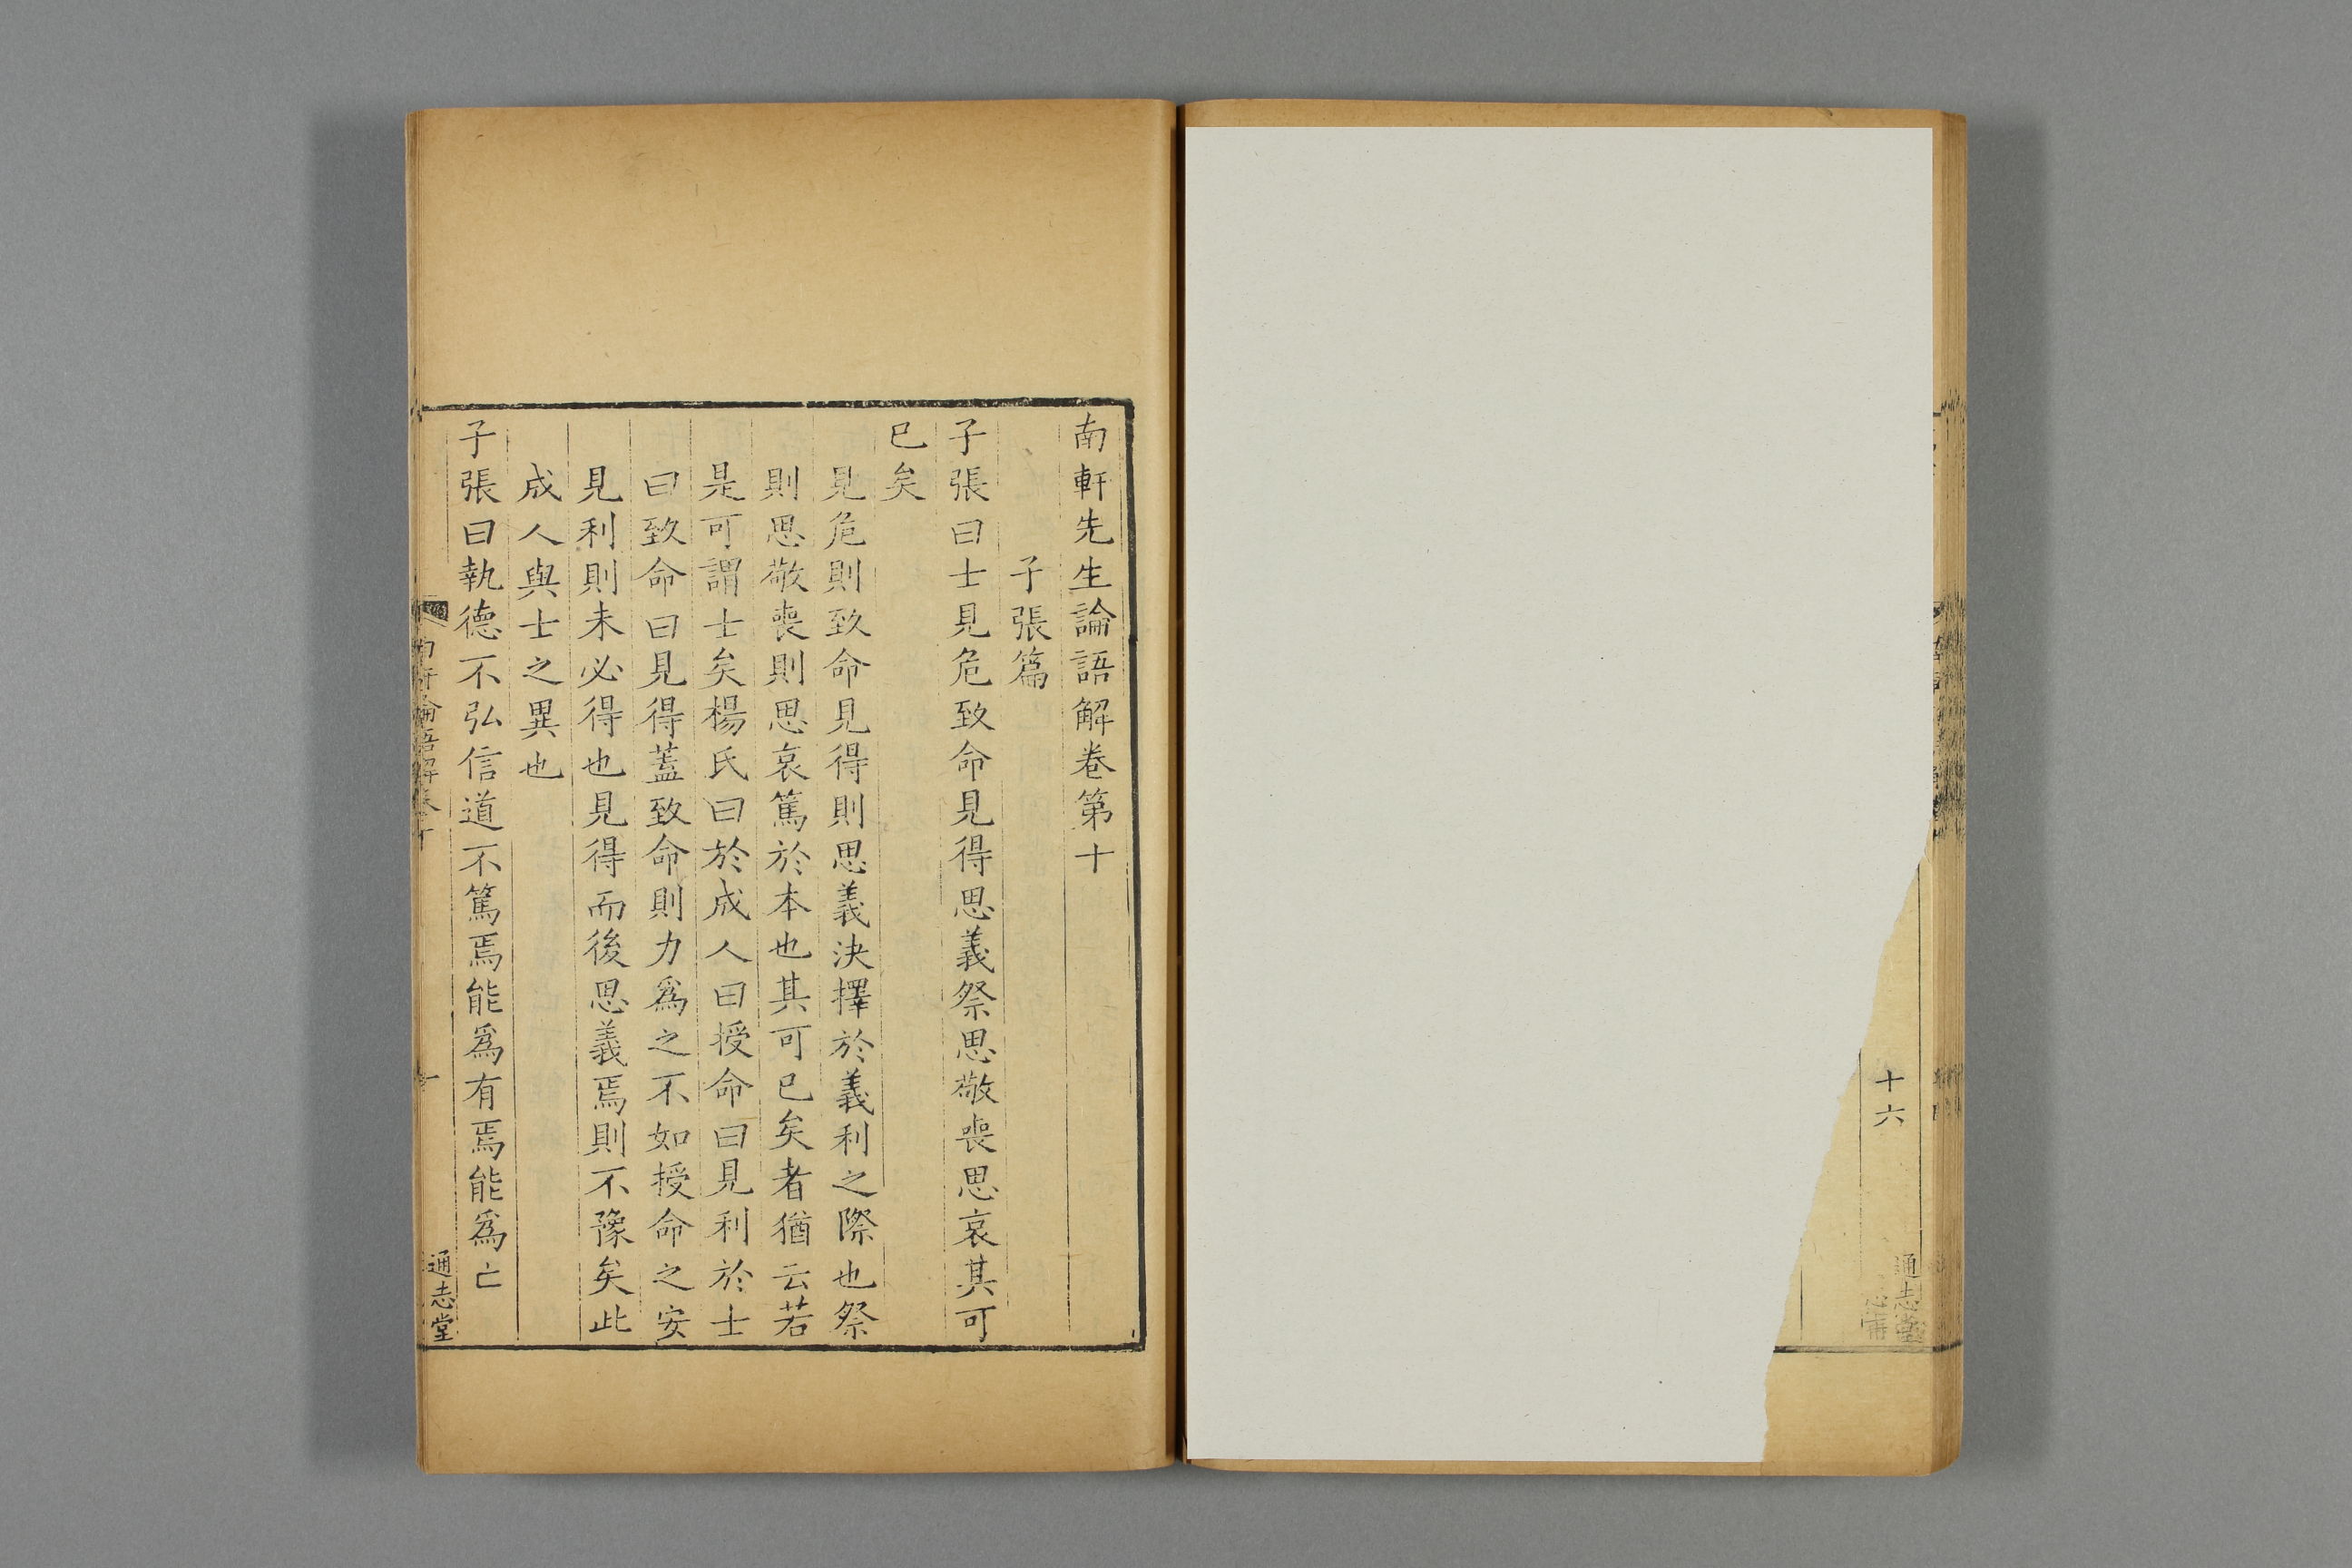 十六
通志堂
南軒先生論語解卷第十
子張篇
子張曰士見危致命見得思義祭思敬喪思哀其可
已矣
見危則致命見得則思義決擇於義利之際也祭
則思敬喪則思哀篤於本也其可已矣者猶云若
是可謂士矣楊氏曰於成人曰授命曰見利於士
曰致命曰見得蓋致命則力爲之不如授命之安
見利則未必得也見得而後思義焉則不豫矣此
成人與士之異也
子張曰執德不弘信道不篤焉能爲有焉能爲亡
通志堂